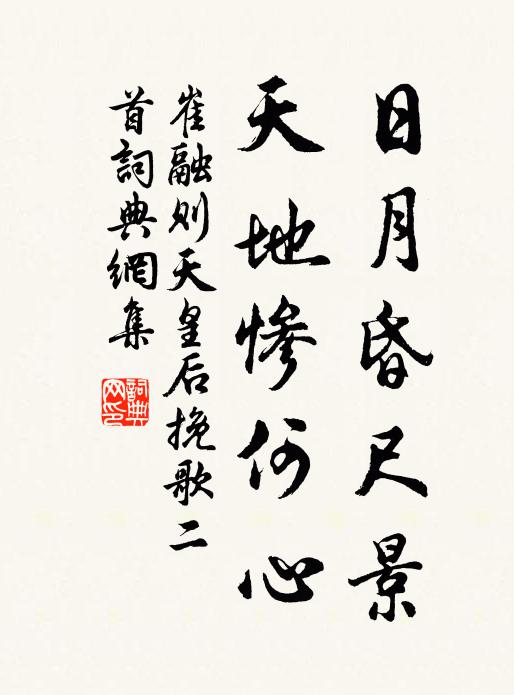 日月昏尺景
天地慘何心
崔融则天皇后挽歌二
首詞典網集
詞典
网印